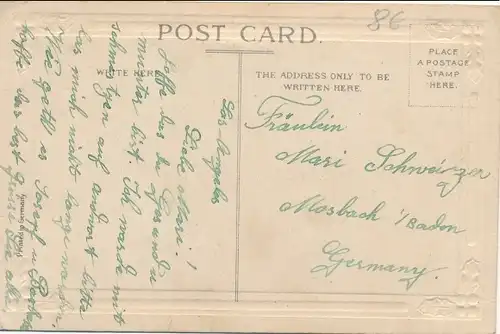 86.
POST CARD.
WRITE HERE
THE ADDRESS ONLY TO BE
WRITTEN HERE.
PLACE
A POSTAGE
STAMP
HERE.
Los Angeles
Liebe Mari!
Hoffe das du Gesund u
munter bist. Ich warde mit
schmertzen auf andwort bitte
las mich nicht lange warden,
Wie geht es Josef u
hoffe das best Grüsse Sie alle
Fräulein
Mari Schweizer
Mosbach i/Baden
Germany.
Printed in Germany